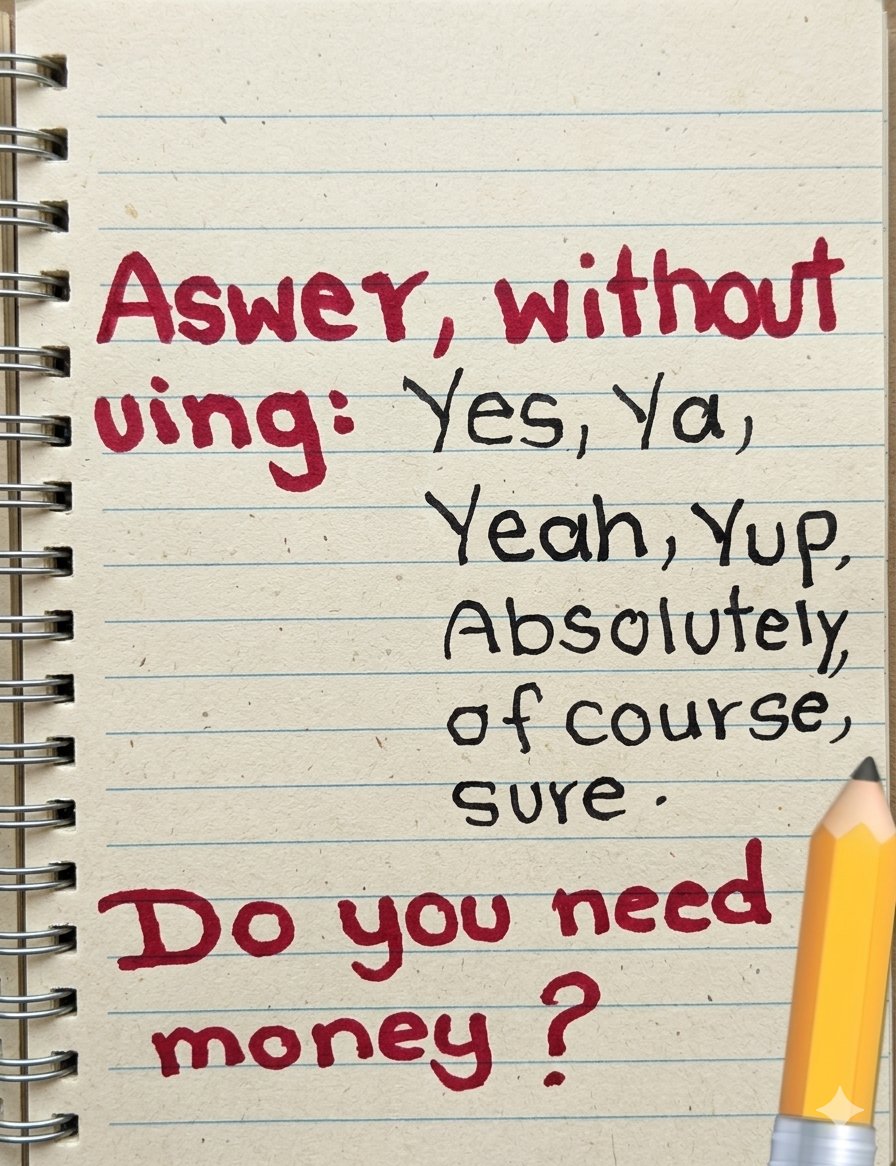 Aswer, without
uing: Yes, Ya,
Yeah, Yup,
Absolutely,
of course,
sure.
Do you need
money?